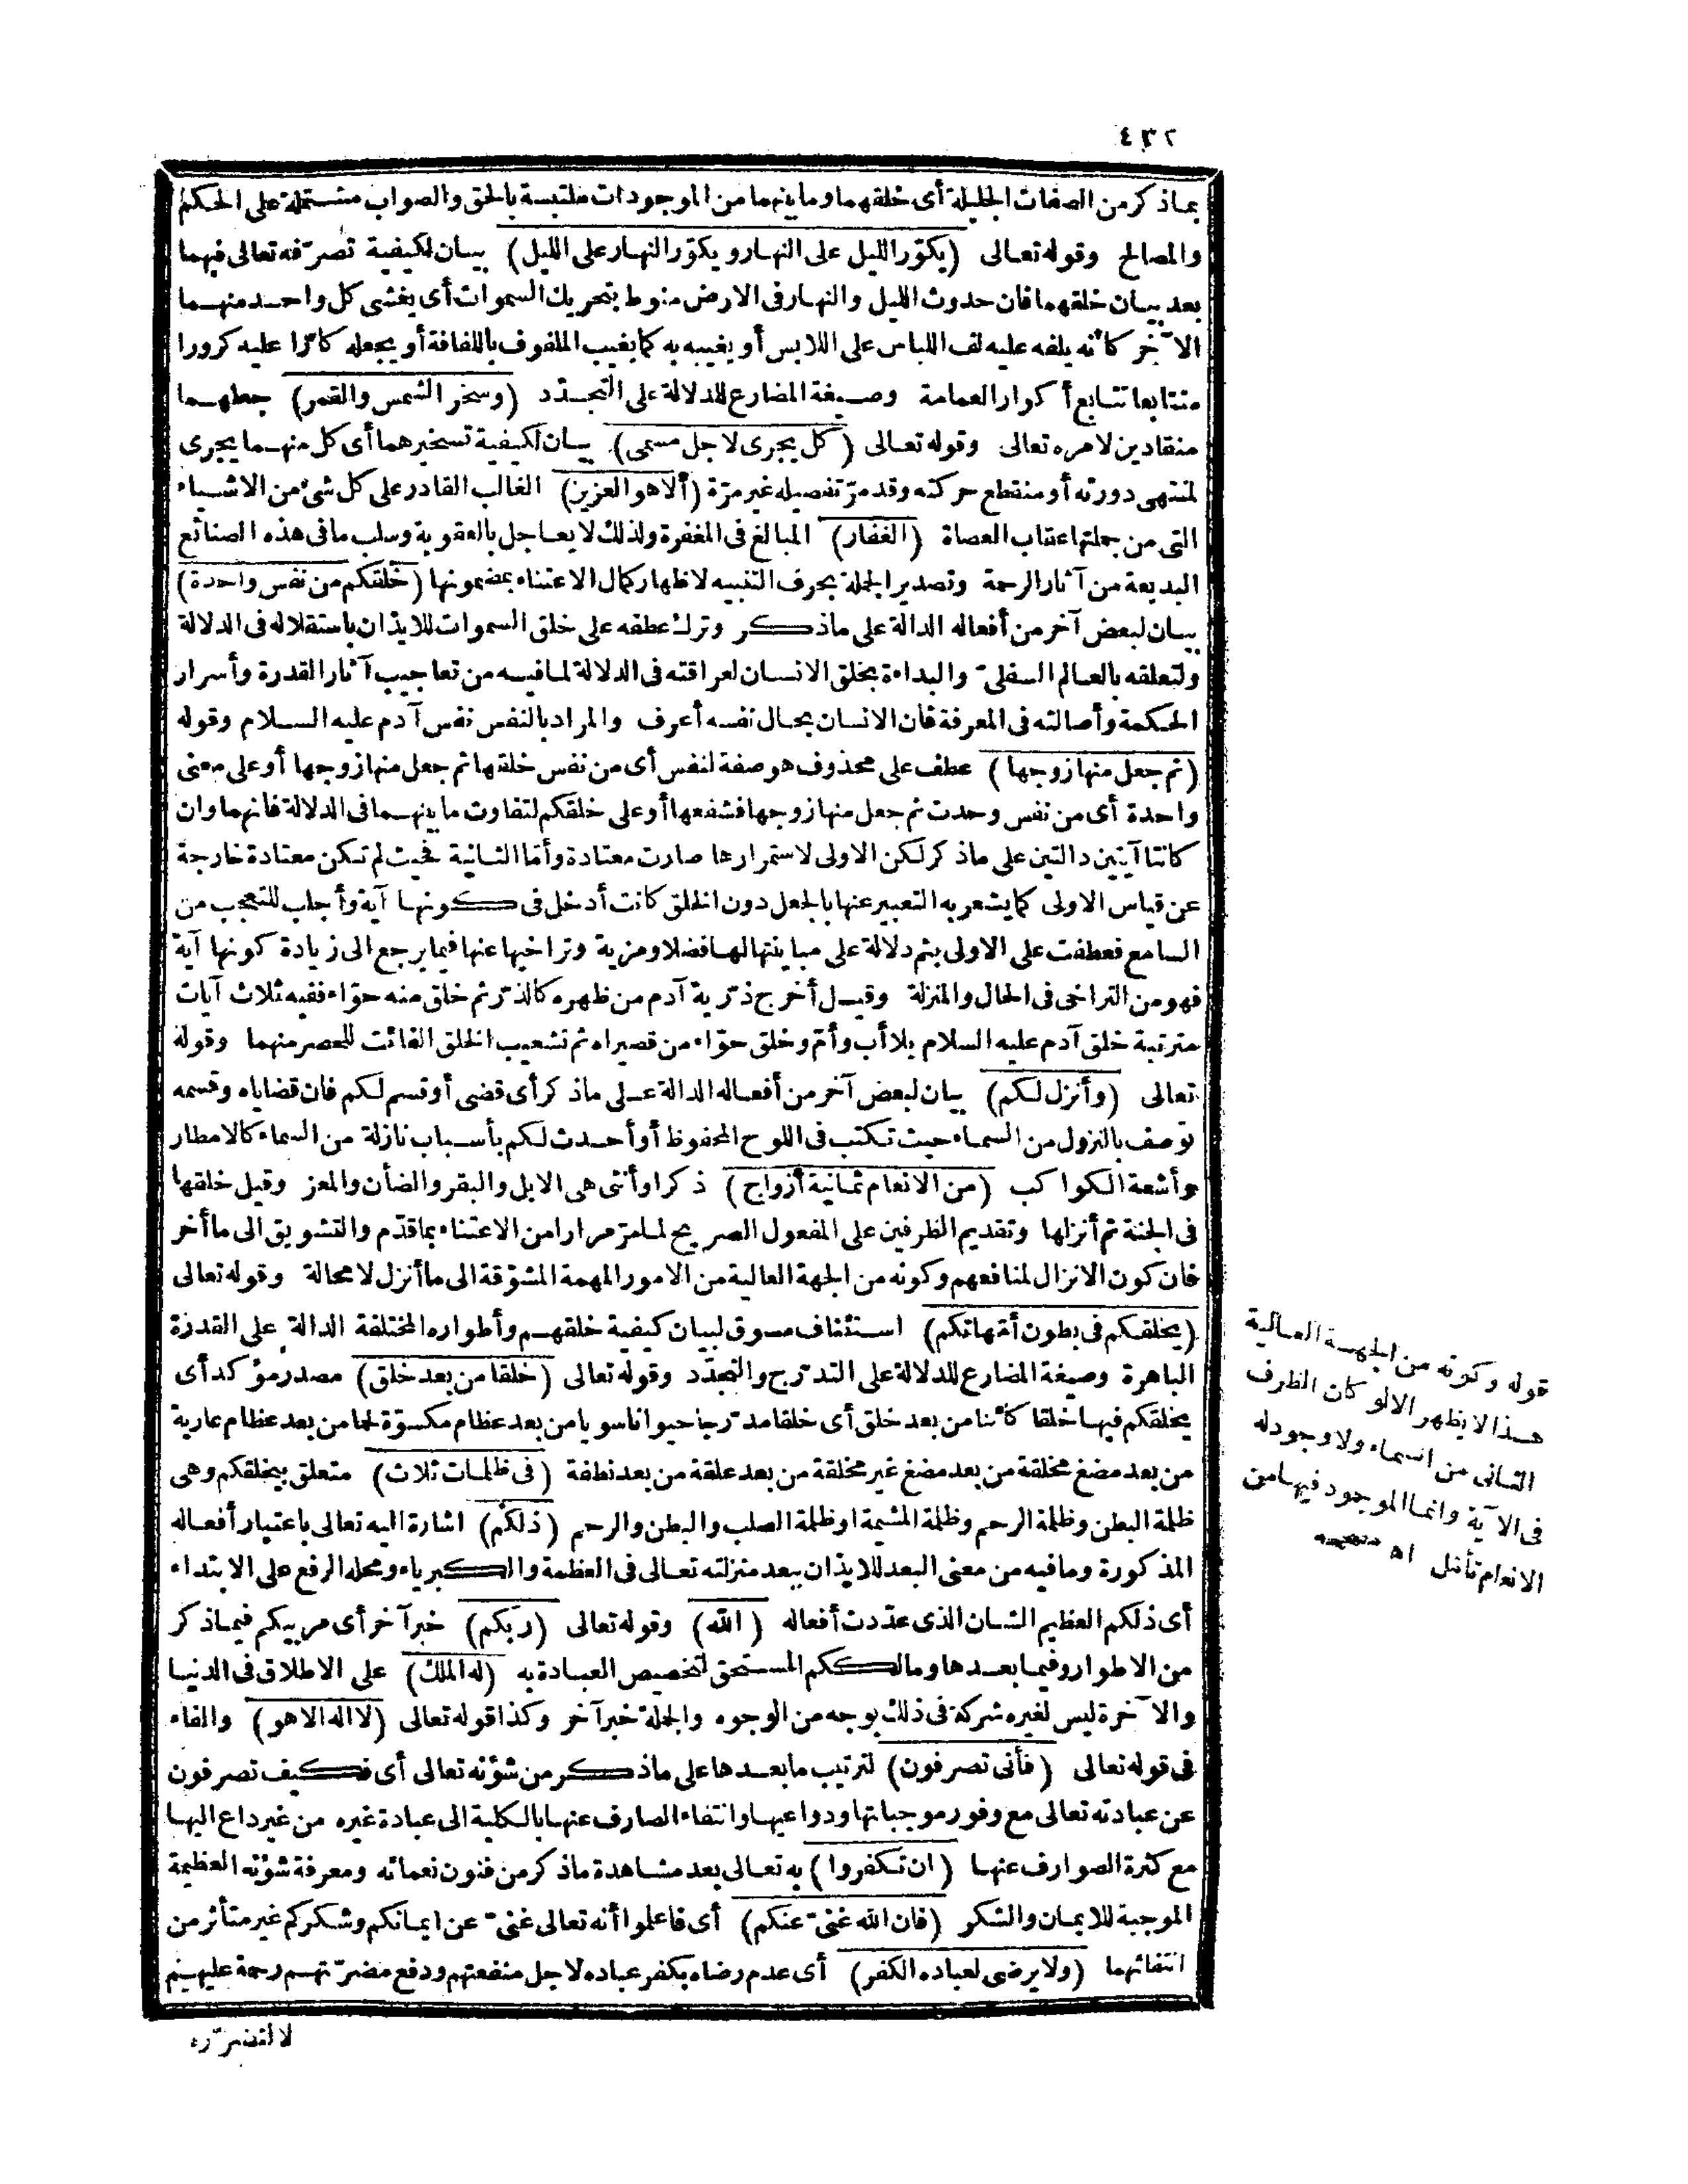 ٤٣٢
بما ذكر من الصفات الجليلة أى خلقهما وما بينهما من الموجودات ملتبسة بالحق والصواب مشتملة على الحكم
والمصالح وقوله تعالى (يكوّر الليل على النهار ويكوّر النهار على الليل) بيان لكيفية تصرّفه تعالى فيهما
بعد بيان خلقهما فان حدوث الليل والنهار فى الارض منوط بتحريك السموات أى يغشى كل واحد منهما
الآخر كأنه يلفه عليه لف اللباس على اللابس أو يغيبه به كما يغيب الملفوف باللفافة أو يجعله كارّا عليه كرورا
متتابعا تتابع أكوار العمامة وصيغة المضارع للدلالة على التجدّد (وسخر الشمس والقمر) جعلهما
منقادين لامره تعالى وقوله تعالى (كل يجرى لاجل مسمى) بيان لكيفية تسخيرهما أى كل منهما يجرى
لمنتهى دورته أو منقطع حركته وقد مرّ تفصيله غير مرّة (ألا هو العزيز) الغالب القادر على كل شئ من الاشياء
التى من جملتها عقاب العصاة (الغفار) المبالغ فى المغفرة ولذلك لا يعاجل بالعقوبة وسلب ما فى هذه الصنائع
البديعة من آثار الرحمة وتصدير الجملة بحرف التنبيه لاظهار كمال الاعتناء بمضمونها (خلقكم من نفس واحدة)
بيان لبعض آخر من أفعاله الدالة على ما ذكر وترك عطفه على خلق السموات للايذان باستقلاله فى الدلالة
ولتعلقه بالعالم السفلىّ والبداءة بخلق الانسان لعراقته فى الدلالة لما فيه من تعاجيب آثار القدرة وأسرار
الحكمة وأصالته فى المعرفة فان الانسان بحال نفسه أعرف والمراد بالنفس نفس آدم عليه السلام وقوله
(ثم جعل منها زوجها) عطف على محذوف هو صفة لنفس أى من نفس خلقها ثم جعل منها زوجها أو على معنى
واحدة أى من نفس وحدت ثم جعل منها زوجها فشفعها أو على خلقكم لتفاوت ما بينهما فى الدلالة فانهما وان
كانتا آيتين دالتين على ما ذكر لكن الاولى لاستمرارها صارت معتادة وأمّا الثانية فحيث لم تكن معتادة خارجة
عن قياس الاولى كما يشعر به التعبير عنها بالجعل دون الخلق كانت أدخل فى كونها آية وأجلب للتعجب من
السامع فعطفت على الاولى بثم دلالة على مباينتها لها فضلا ومزية وتراخيها عنها فيما يرجع الى زيادة كونها آية
فهو من التراخى فى الحال والمنزلة وقيل أخرج ذرّية آدم من ظهره كالذرّ ثم خلق منه حوّاء ففيه ثلاث آيات
مترتبة خلق آدم عليه السلام بلا أب وأمّ وخلق حوّاء من قصيراه ثم تشعيب الخلق الفائت للحصر منهما وقوله
تعالى (وأنزل لكم) بيان لبعض آخر من أفعاله الدالة على ما ذكر أى قضى أو قسم لكم فان قضاياه وقسمه
توصف بالنزول من السماء حيث تكتب فى اللوح المحفوظ أو أحدث لكم بأسباب نازلة من السماء كالامطار
وأشعة الكواكب (من الانعام ثمانية أزواج) ذكرا وأنثى هى الابل والبقر والضأن والمعز وقيل خلقها
فى الجنة ثم أنزلها وتقديم الظرفين على المفعول الصريح لما مرّ مرارا من الاعتناء بما قدّم والتشويق الى ما أخر
فان كون الانزال لمنافعهم وكونه من الجهة العالية من الامور المهمة المشوّقة الى ما أنزل لا محالة وقوله تعالى
(يخلقكم فى بطون أمّهاتكم) استئناف مسوق لبيان كيفية خلقهم وأطواره المختلفة الدالة على القدرة
الباهرة وصيغة المضارع للدلالة على التدرّج والتجدّد وقوله تعالى (خلقا من بعد خلق) مصدر مؤكد أى
يخلقكم فيها خلقا كائنا من بعد خلق أى خلقا مدرّجا حيوانا سويا من بعد عظام مكسوّة لحما من بعد عظام عارية
من بعد مضغ مخلقة من بعد مضغ غير مخلقة من بعد علقة من بعد نطفة (فى ظلمات ثلاث) متعلق بيخلقكم وهى
ظلمة البطن وظلمة الرحم وظلمة المشيمة او ظلمة الصلب والبطن والرحم (ذلكم) اشارة اليه تعالى باعتبار أفعاله
المذكورة وما فيه من معنى البعد للايذان ببعد منزلته تعالى فى العظمة والكبرياء ومحله الرفع على الابتداء
أى ذلكم العظيم الشان الذى عدّدت أفعاله (الله) وقوله تعالى (ربكم) خبر آخر أى مربيكم فيما ذكر
من الاطوار وفيما بعدها ومالككم المستحق لتخصيص العبادة به (له الملك) على الاطلاق فى الدنيا
والآخرة ليس لغيره شركة فى ذلك بوجه من الوجوه والجملة خبر آخر وكذا قوله تعالى (لا اله الا هو) والفاء
فى قوله تعالى (فأنى تصرفون) لترتيب ما بعدها على ما ذكر من شؤنه تعالى أى فكيف تصرفون
عن عبادته تعالى مع وفور موجباتها ودواعيها وانتفاء الصارف عنها بالكلية الى عبادة غيره من غير داع اليها
مع كثرة الصوارف عنها (ان تكفروا) به تعالى بعد مشاهدة ما ذكر من فنون نعمائه ومعرفة شؤنه العظيمة
الموجبة للايمان والشكر (فان الله غنىّ عنكم) أى فاعلموا أنه تعالى غنىّ عن ايمانكم وشكركم غير متأثر من
انتفائهما (ولا يرضى لعباده الكفر) أى عدم رضاه بكفر عباده لاجل منفعتهم ودفع مضرّتهم رحمة عليهم
لا لتضرّره
قوله وكونه من الجهة العالية
هذا لا يظهر الا لو كان الظرف
الثانى من السماء ولا وجود له
فى الآية وانما الموجود فيها من
الانعام تأمّل اه مصححه